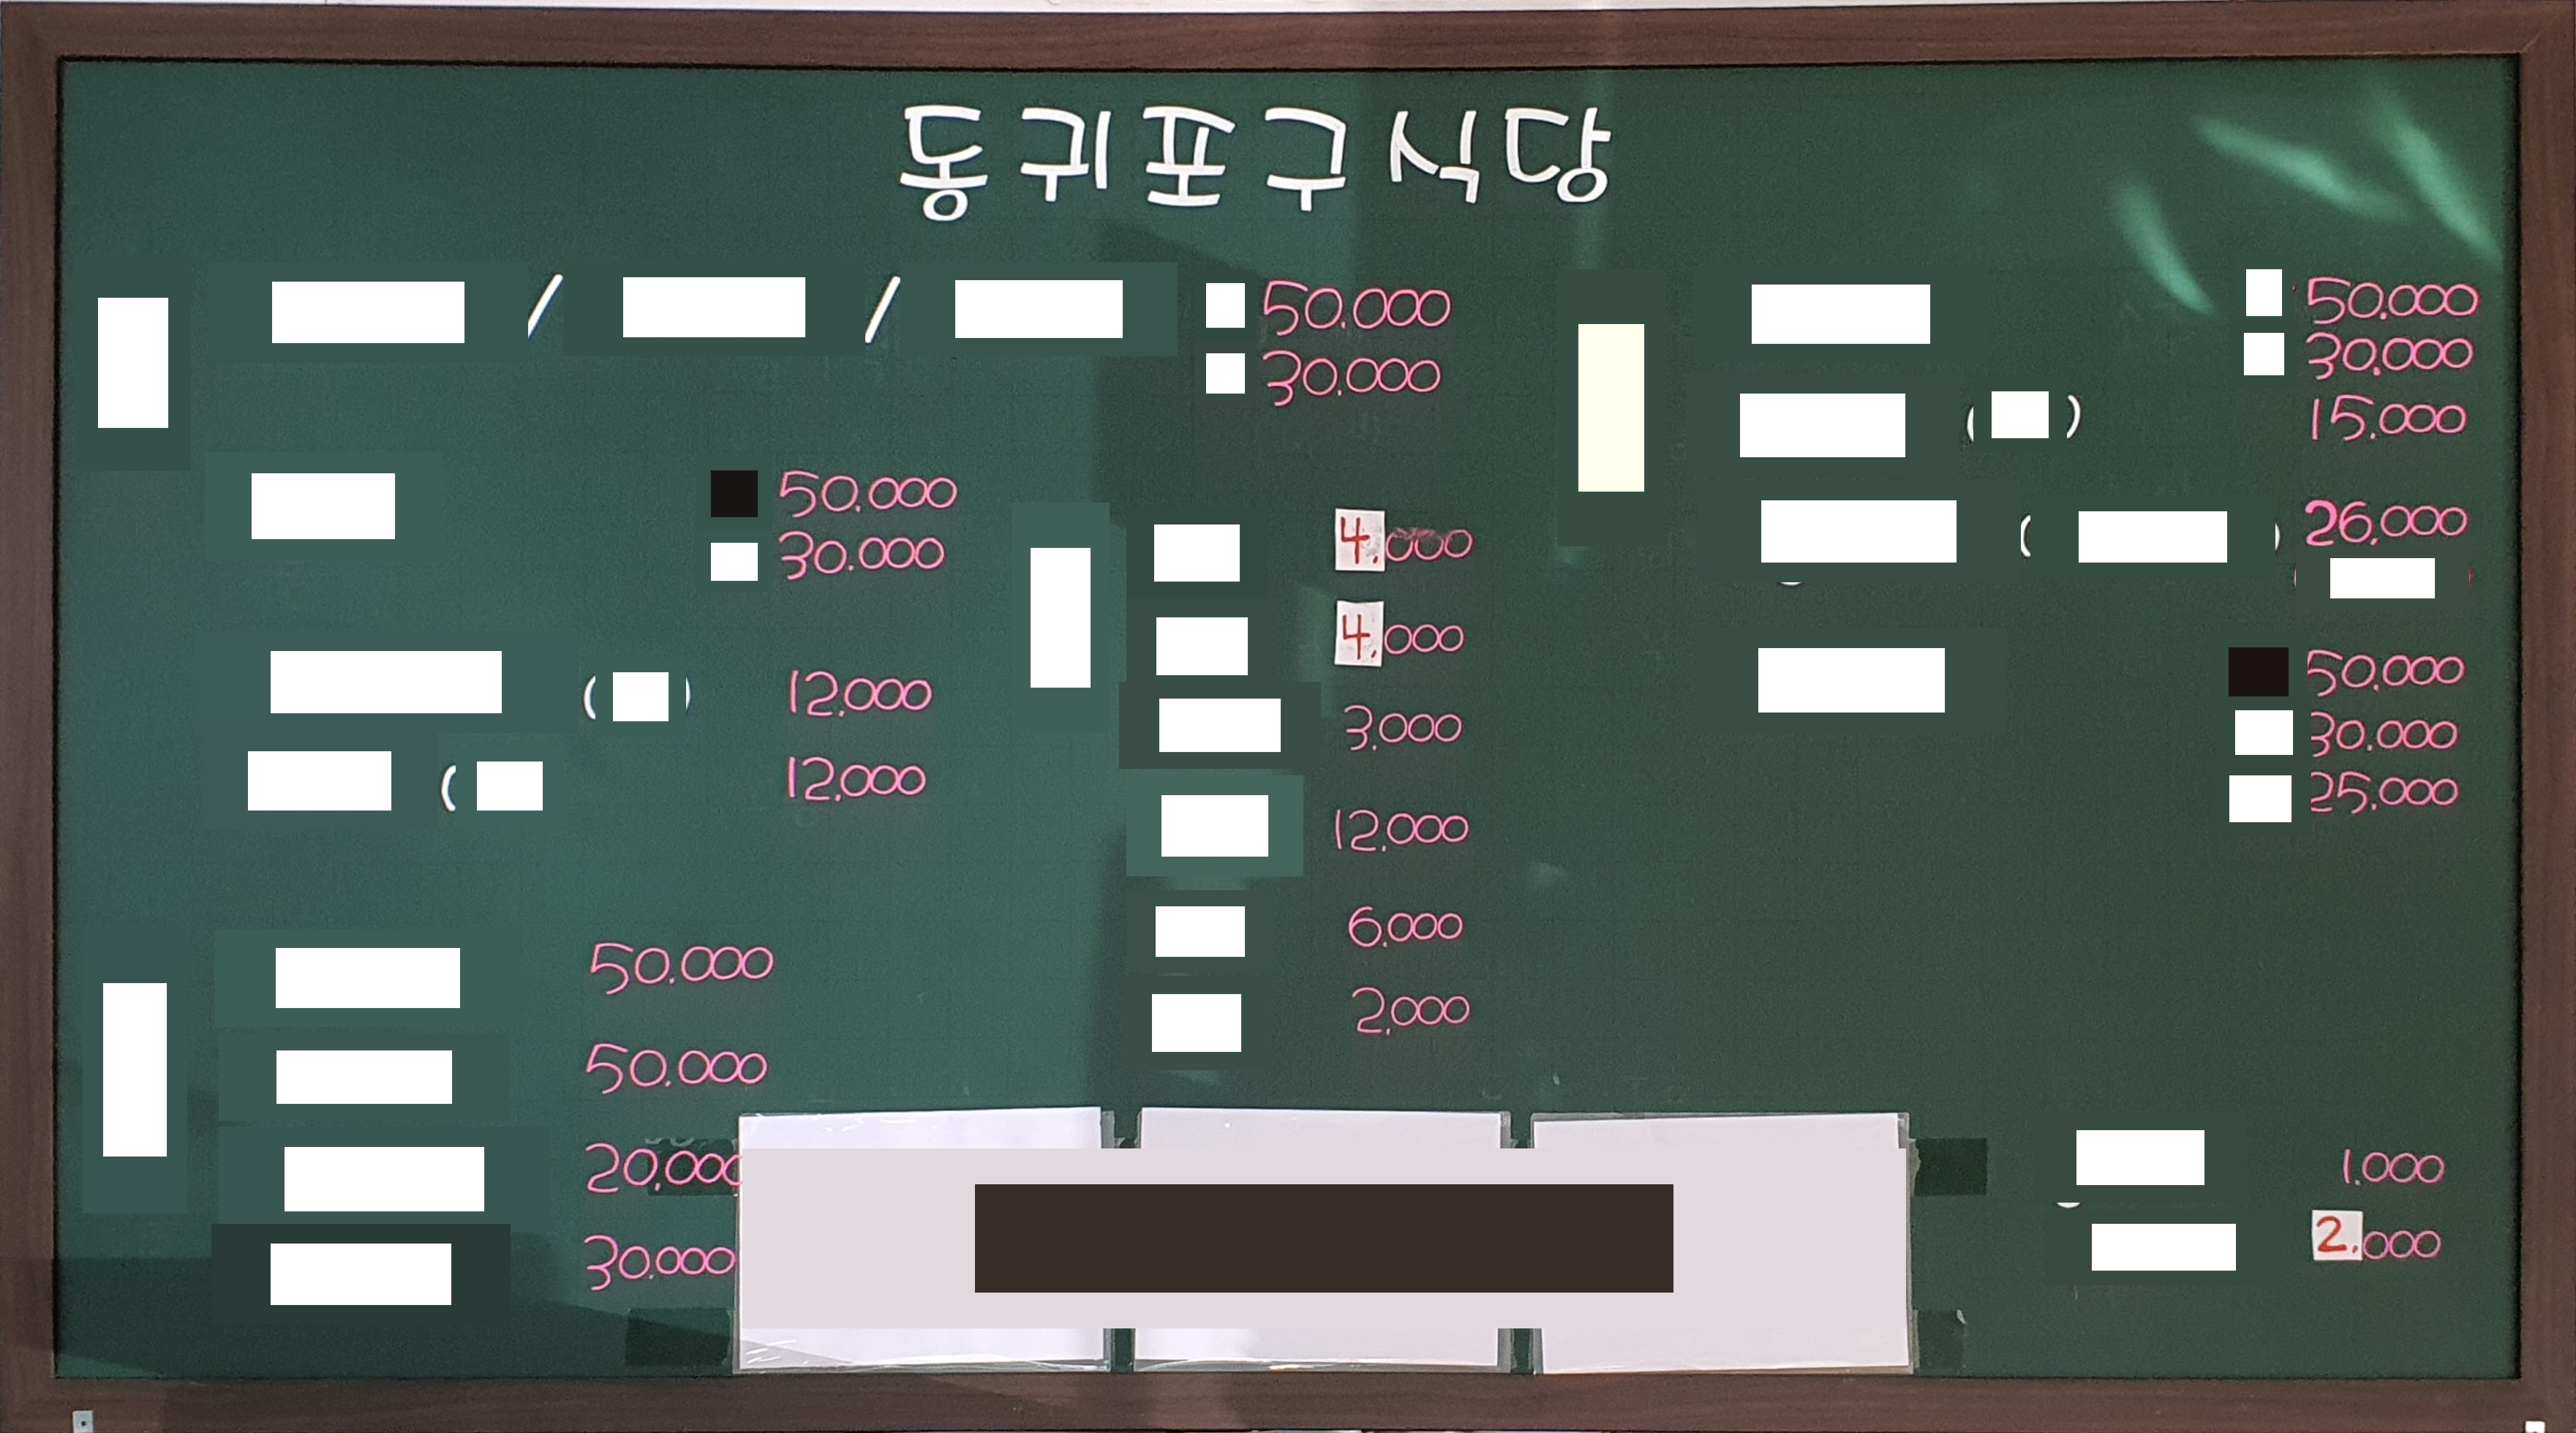 동귀포구식당
/ / 50.000
30.000
50.000
30.000
( ) 12.000
( 12.000
50.000
50.000
20,000
30.000
4.000
4.000
3.000
12.000
6.000
2,000
50.000
30.000
( ) 15.000
( ) 26.000
50.000
30.000
25.000
1.000
2.000